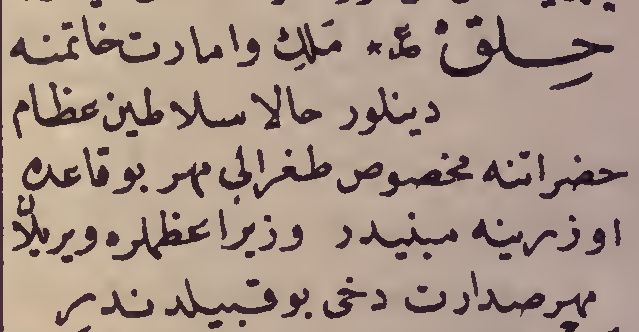 حِلق ع* مَلِك وامارت خاتمنه
دينلور حالا سلاطين عظام
حضراتنه مخصوص طغرالى مهر بو قاعده
اوزرينه مبنيدر وزيراعظملره ويريلان
مهر صدارت دخى بو قبيلدندر